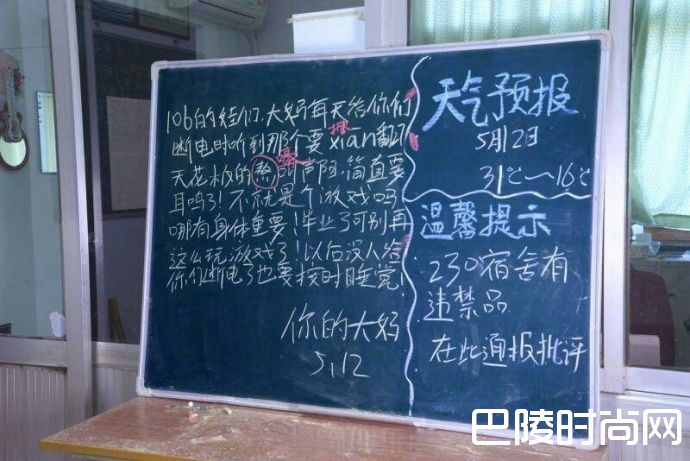 106的娃们，大妈每天给你们
掀
断电时听到那个要xian翻
嗷
天花板的熬叫声阿，简直要
耳鸣了！不就是个游戏吗
哪有身体重要！毕业了可别再
这么玩游戏了！以后没人给
你们断电了也要按时睡觉！
你的大妈
5.12
天气预报
5月12日
31℃～16℃
温馨提示
230宿舍有
违禁品
在此通报批评
巴陵时尚网